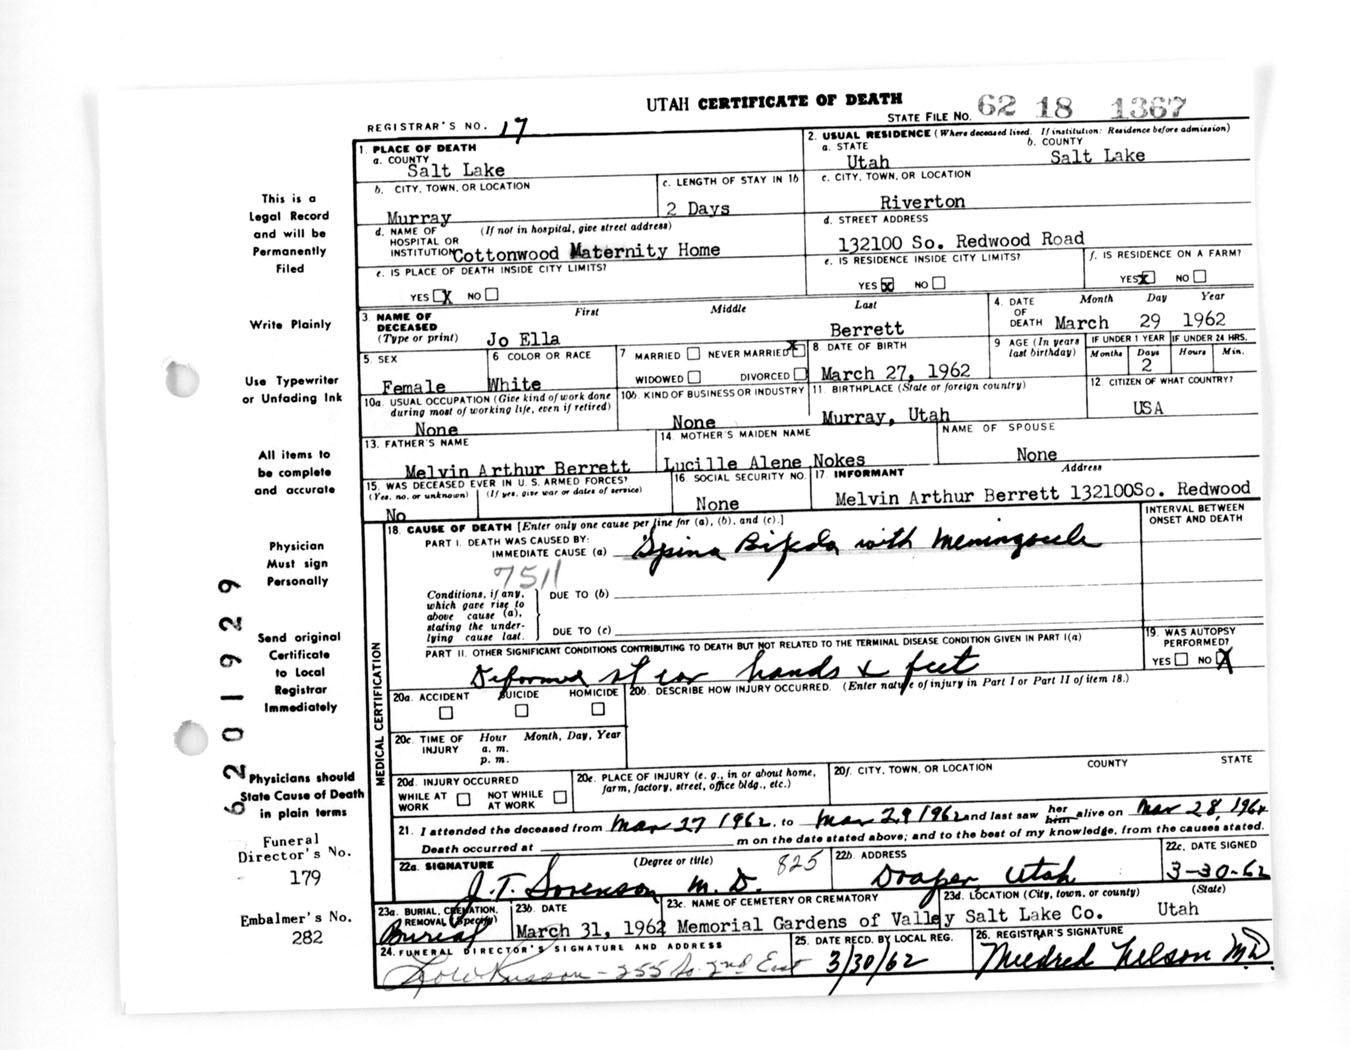 UTAH CERTIFICATE OF DEATH
STATE FILE NO. 62 18 1367
REGISTRAR'S NO. 17
1. PLACE OF DEATH
a. COUNTY
Salt Lake
2. USUAL RESIDENCE (Where deceased lived. If institution: Residence before admission)
a. STATE
Utah
b. COUNTY
Salt Lake
b. CITY, TOWN, OR LOCATION
Murray
c. LENGTH OF STAY IN 1b
2 Days
c. CITY, TOWN, OR LOCATION
Riverton
d. NAME OF HOSPITAL OR INSTITUTION (If not in hospital, give street address)
Cottonwood Maternity Home
d. STREET ADDRESS
132100 So. Redwood Road
e. IS PLACE OF DEATH INSIDE CITY LIMITS?
YES X NO
e. IS RESIDENCE INSIDE CITY LIMITS?
YES X NO
f. IS RESIDENCE ON A FARM?
YES X NO
3. NAME OF DECEASED (Type or print)
First Middle Last
Jo Ella Berrett
4. DATE OF DEATH
Month Day Year
March 29 1962
5. SEX
Female
6 COLOR OR RACE
White
7 MARRIED NEVER MARRIED X
WIDOWED DIVORCED
8. DATE OF BIRTH
March 27, 1962
9 AGE (In years last birthday)
IF UNDER 1 YEAR IF UNDER 24 HRS.
Months Days Hours Min.
2
10a. USUAL OCCUPATION (Give kind of work done during most of working life, even if retired)
None
10b. KIND OF BUSINESS OR INDUSTRY
None
11. BIRTHPLACE (State or foreign country)
Murray, Utah
12. CITIZEN OF WHAT COUNTRY?
USA
13. FATHER'S NAME
Melvin Arthur Berrett
14. MOTHER'S MAIDEN NAME
Lucille Alene Nokes
NAME OF SPOUSE
None
15. WAS DECEASED EVER IN U.S. ARMED FORCES?
(Yes, no, or unknown) (If yes, give war or dates of service)
No
16. SOCIAL SECURITY NO.
None
17 INFORMANT Address
Melvin Arthur Berrett 132100So. Redwood
18. CAUSE OF DEATH [Enter only one cause per line for (a), (b), and (c).]
INTERVAL BETWEEN ONSET AND DEATH
PART I. DEATH WAS CAUSED BY:
IMMEDIATE CAUSE (a) Spina Bifida with Meningocele
7511
Conditions, if any, which gave rise to above cause (a), stating the underlying cause last.
DUE TO (b)
DUE TO (c)
PART II. OTHER SIGNIFICANT CONDITIONS CONTRIBUTING TO DEATH BUT NOT RELATED TO THE TERMINAL DISEASE CONDITION GIVEN IN PART I(a)
Deformed hands & feet
19. WAS AUTOPSY PERFORMED?
YES NO X
20a. ACCIDENT SUICIDE HOMICIDE
20b. DESCRIBE HOW INJURY OCCURRED. (Enter nature of injury in Part I or Part II of item 18.)
20c. TIME OF INJURY
Hour Month, Day, Year
a. m.
p. m.
20d. INJURY OCCURRED
WHILE AT WORK NOT WHILE AT WORK
20e. PLACE OF INJURY (e. g., in or about home, farm, factory, street, office bldg., etc.)
20f. CITY, TOWN, OR LOCATION COUNTY STATE
21. I attended the deceased from Mar 27 1962, to Mar 29 1962 and last saw her him alive on Mar 28, 1962
Death occurred at m on the date stated above; and to the best of my knowledge, from the causes stated.
22a. SIGNATURE (Degree or title)
J. T. Sorenson M. D.
825
22b. ADDRESS
Draper, Utah
22c. DATE SIGNED
3-30-62
23a. BURIAL, CREMATION, REMOVAL (Specify)
Burial
23b. DATE
March 31, 1962
23c. NAME OF CEMETERY OR CREMATORY
Memorial Gardens of Valley
23d. LOCATION (City, town, or county) (State)
Salt Lake Co. Utah
24. FUNERAL DIRECTOR'S SIGNATURE AND ADDRESS
255 So. 2nd East
25. DATE RECD. BY LOCAL REG.
3/30/62
26. REGISTRAR'S SIGNATURE
Mildred Nelson M.D.
MEDICAL CERTIFICATION
This is a
Legal Record
and will be
Permanently
Filed
Write Plainly
Use Typewriter
or Unfading Ink
All items to
be complete
and accurate
Physician
Must sign
Personally
Send original
Certificate
to Local
Registrar
Immediately
Physicians should
State Cause of Death
in plain terms
Funeral
Director's No.
179
Embalmer's No.
282
6201929